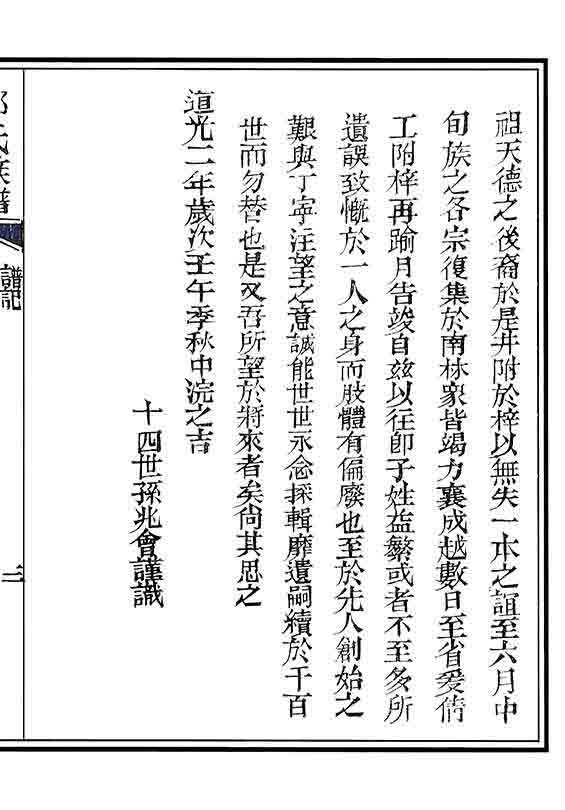 祖天德之後裔於是并附於梓以無失一本之誼至六月中
旬族之各宗復集於南林衆皆竭力襄成越數日至省爰倩
工附梓再踰月告竣自兹以往卽子姓益繁或者不至多所
遺誤致慨於一人之身而肢體有偏廢也至於先人創始之
艱與丁寧注望之意誠能世世永念採輯靡遺嗣續於千百
世而勿替也是又吾所望於將來者矣尙其思之
道光二年歲次壬午季秋中浣之吉
十四世孫兆會謹識
氏族譜
譜記
二